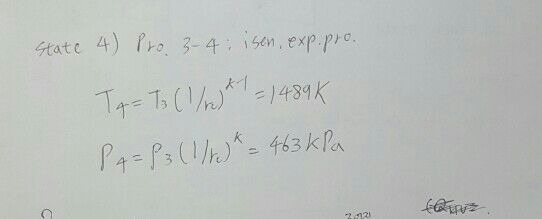 state 4) Pro. 3-4 : isen. exp. pro.
T₄ = T₃ (1/rc)^k-1 = 1489K
P₄ = P₃ (1/rc)^k = 463kPa